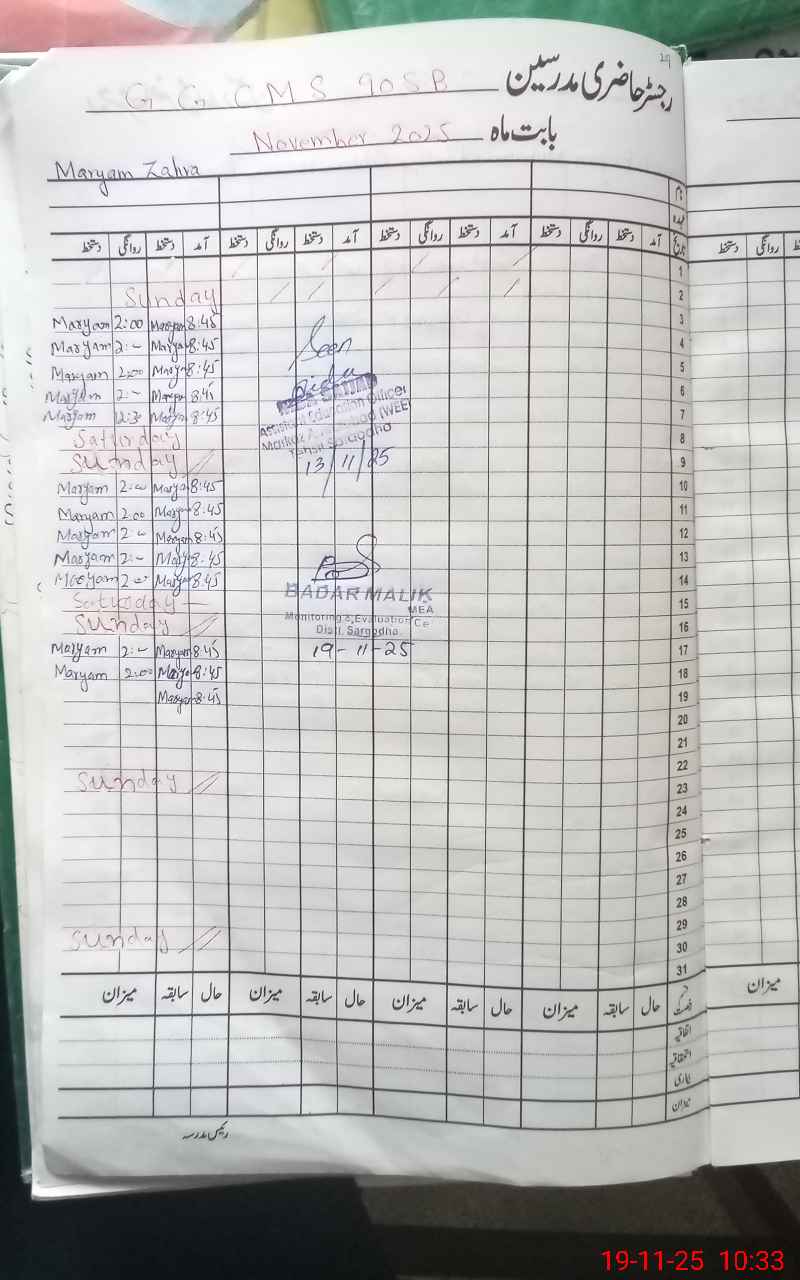 29
رجسٹر حاضری مدرسین G G CMS 90 SB
بابت ماہ November 2025
نام Maryam Zahra
عہدہ
تاریخ آمد دستخط روانگی دستخط آمد دستخط روانگی دستخط آمد دستخط روانگی دستخط آمد دستخط روانگی دستخط
1
Sunday 2
Maryam 2:00 Maryam 8:45 3
Maryam 2:- Maryam 8:45 4
Maryam 2:00 Maryam 8:45 5
Maryam 2:- Maryam 8:45 6
Maryam 12:30 Maryam 8:45 7
Saturday 8
Sunday 9
Maryam 2:- Maryam 8:45 10
Maryam 2:00 Maryam 8:45 11
Maryam 2:- Maryam 8:45 12
Maryam 2:- Maryam 8:45 13
Maryam 2:00 Maryam 8:45 14
Saturday 15
Sunday 16
Maryam 2:- Maryam 8:45 17
Maryam 2:00 Maryam 8:45 18
Maryam 8:45 19
20
21
22
Sunday 23
24
25
26
27
28
29
Sunday 30
31
Seen
Assistant Education Officer
Markaz (WEE)
Tehsil Sargodha
13/11/25
BADAR MALIK
MEA
Monitoring & Evaluation Ce
Distt. Sargodha
19-11-25
رخصت حال سابقہ میزان حال سابقہ میزان حال سابقہ میزان حال سابقہ میزان
اتفاقیہ
استحقاقیہ
بیماری
میزان
رئیس مدرسہ
دستخط روانگی
میزان
19-11-25 10:33